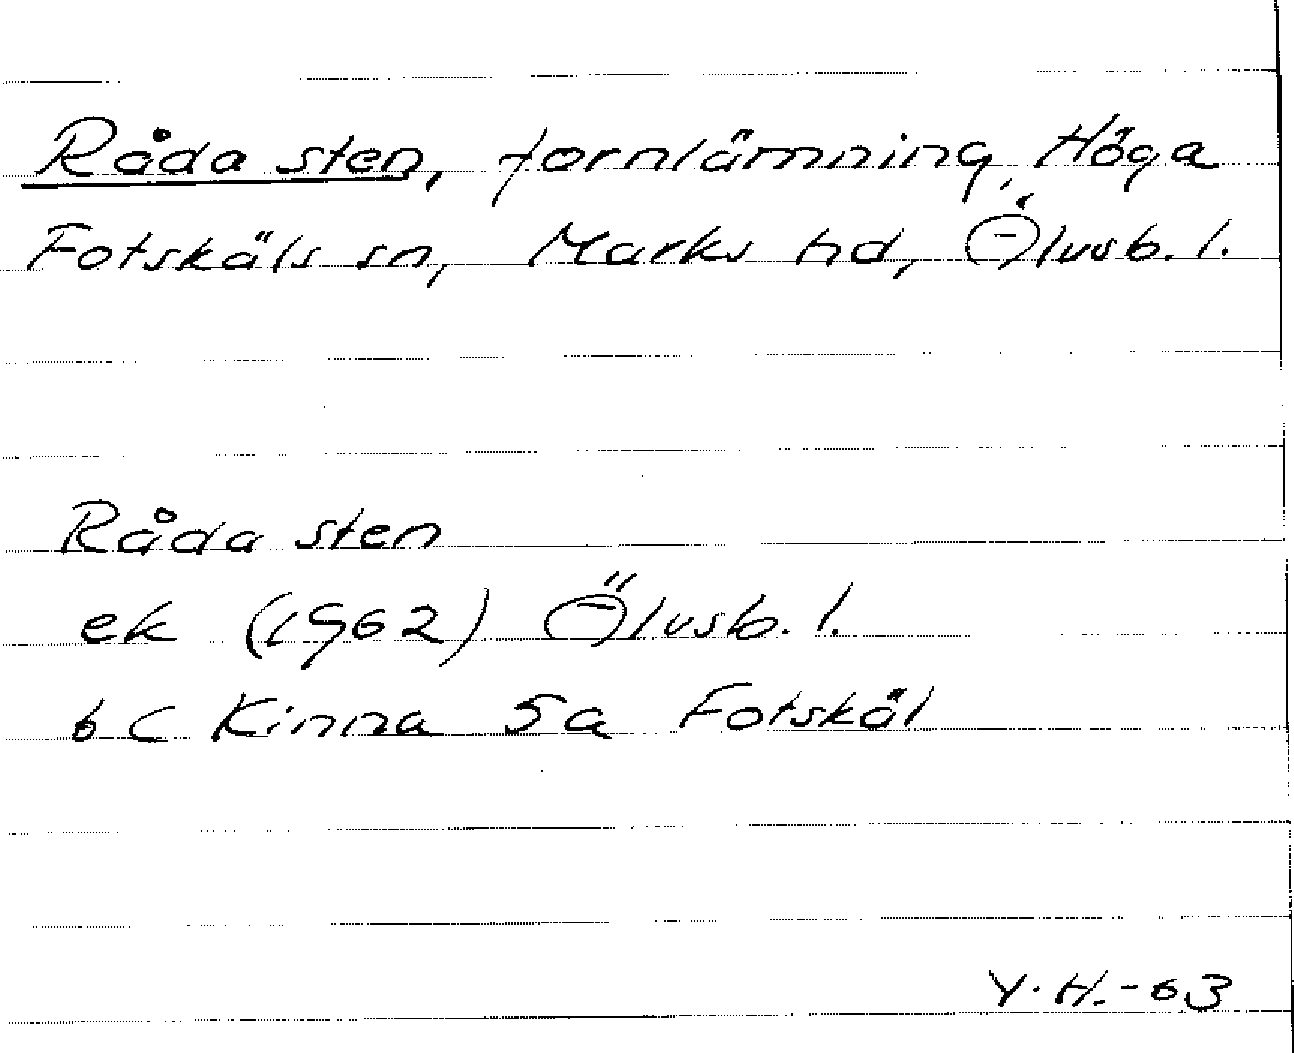 Råda sten, fornlämning, Höga
Fotskäls sn, Marks hd, Älvsb. l.
Råda sten
ek (1962) Älvsb. l.
6 C Kinna 5a Fotskäl
Y.H.-63